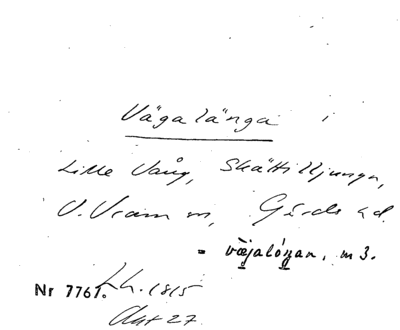 Vägalänga i
Lille Vång, Skättilljunga,
V. Vram sn, Gärds hd.
= vä̱jalóṉan, m 3.
Nr 7761. Lh. 1815
Akt 27.